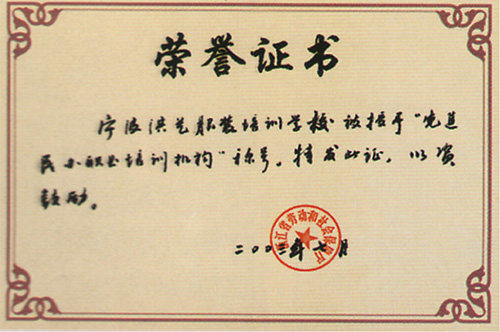 荣誉证书
宁波洪艺服装培训学校被授于“先进
民办职业培训机构”称号。特发此证，以资
鼓励。
浙江省劳动和社会保障厅
二00三年七月